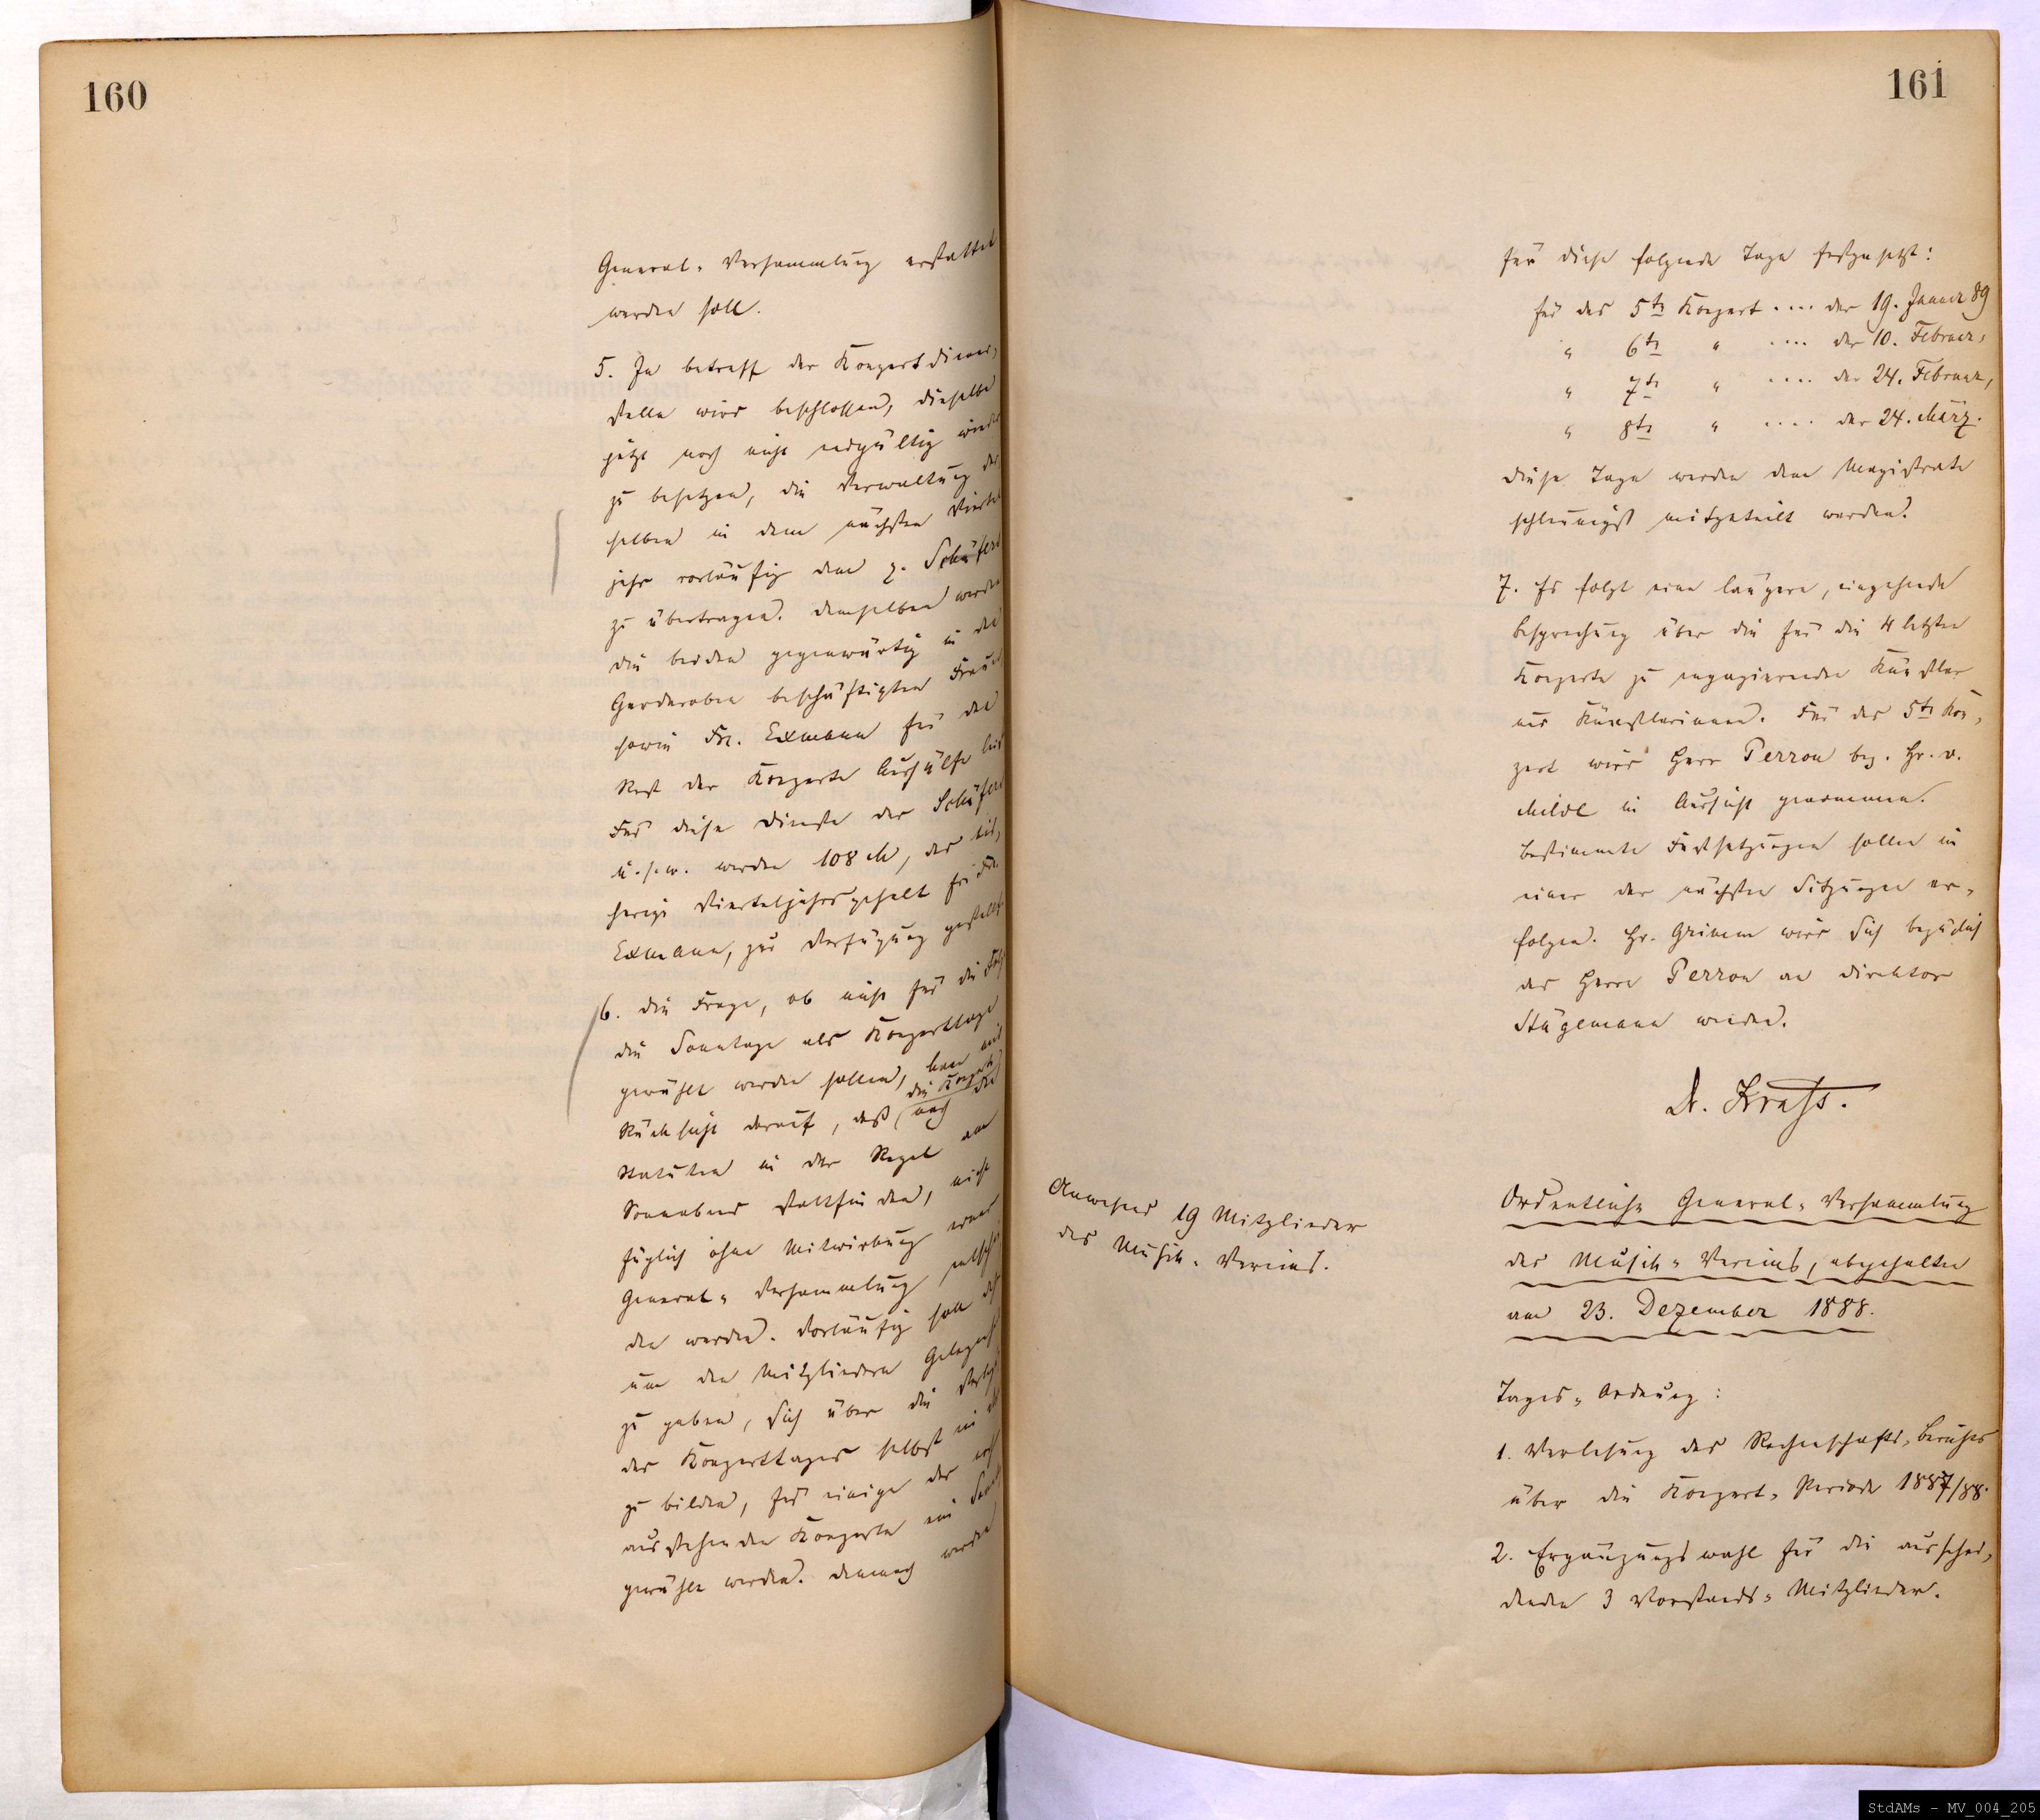 160
General-Versammlung erstattet
werden soll.
5. In betreff der Konzertdiener-
stelle wird beschlossen, dieselbe
jetzt noch nicht endgültig wieder
zu besetzen, die Verwaltung der-
selben in dem nächsten Viertel
jahr vorläufig dem p. Schäfer
zu übertragen. Demselben werden
die beiden gegenwärtig in den
Garderoben beschäftigten Frauen
sowie Fr. Exmann für den
Rest der Konzerte Aushülfe
Für diese Dienste der Schäfer
u.s.w. werden 108 M, der bis-
herige Vierteljahrsgehalt für Fr.
Exmann, zur Verfügung gestellt
6. Die Frage, ob nicht für die Folge
die Sonntage als Konzerttage
gewählt werden sollen, kann mit
Rücksicht darauf, daß die Konzerte nach den
Statuten in der Regel am
Sonnabend stattfinden, nicht
füglich ohne Mitwirkung einer
General-Versammlung entschie
den werden. Vorläufig soll
um den Mitgliedern Gelegenh
zu geben, sich über die
des Konzerttages selbst ein
zu bilden, für einige der noch
ausstehenden Konzerte ein Sonnt
gewählt werden. Demnach werden
161
für diese folgende Tage festgesetzt:
für das 5te Konzert .... der 19. Januar 89
" 6te " .... der 10. Februar,
" 7te " .... der 24. Februar,
" 8te " .... der 24. März.
Diese Tage werden dem Magistrate
schleunigst mitgeteilt werden.
7. Es folgt eine längere, eingehende
Besprechung über die für die 4 letzten
Konzerte zu engagierenden Künstler
und Künstlerinnen. Für das 5te Kon-
zert wird Herr Perron bez. Hr. v.
Milde in Aussicht genommen.
Bestimmte Festsetzungen sollen in
einer der nächsten Sitzungen er-
folgen. Hr. Grimm wird sich bezüglich
des Herrn Perron an Direktor
Stägemann wenden.
Dr. Krafs.
Anwesend 19 Mitglieder
des Musik-Vereins.
Ordentliche General-Versammlung
des Musik-Vereins, abgehalten
am 23. Dezember 1888.
Tages-Ordnung:
1. Verlesung des Rechenschafts-Berichts
über die Konzert-Periode 1887/88.
2. Ergänzungswahl für die ausschei-
denden 3 Vorstands-Mitglieder.
StdAMs - MV_004_205